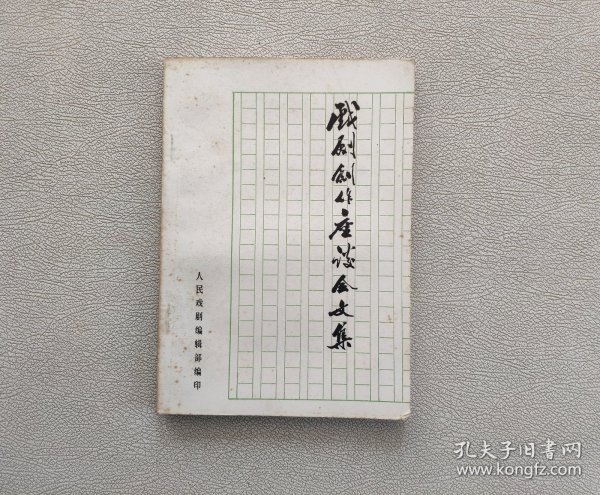 戲剧創作座谈会文集
人民戏剧编辑部编印
孔夫子旧书网
www.kongfz.com